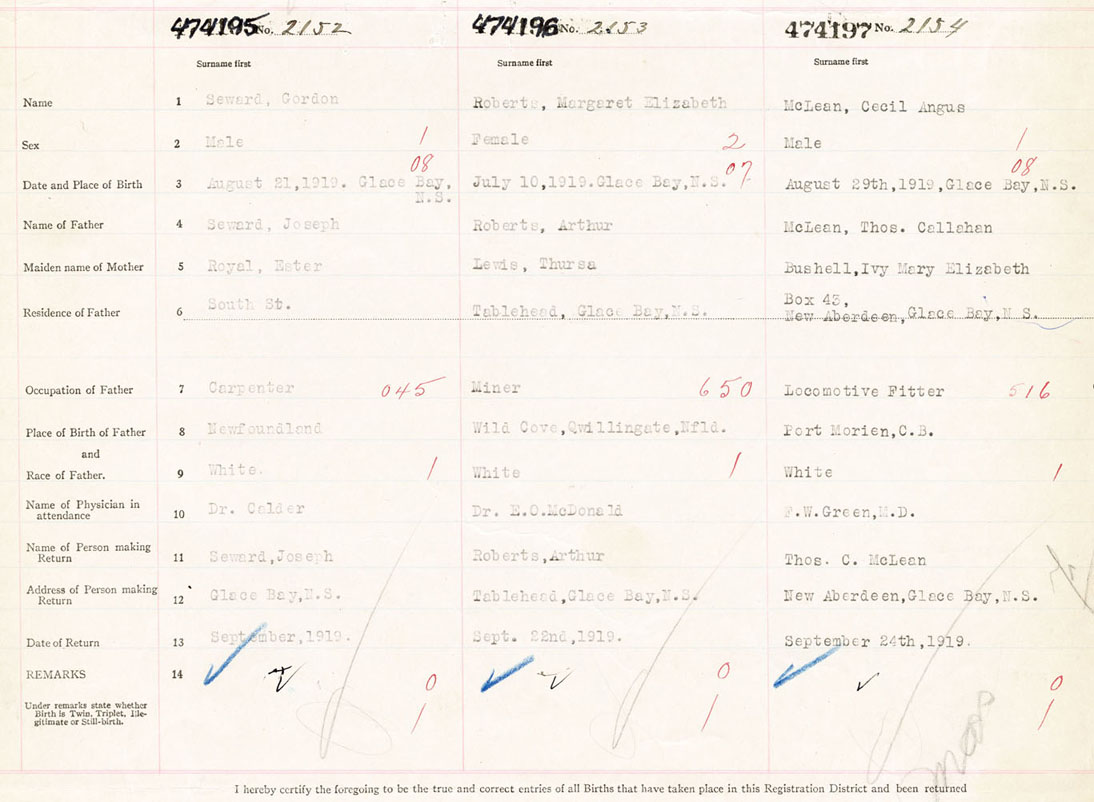 474195 No. 2152 474196 No. 2153 474197 No. 2154
Surname first Surname first Surname first
Name 1 Seward, Gordon Roberts, Margaret Elizabeth McLean, Cecil Angus
Sex 2 Male 1 Female 2 Male 1
08 07 08
Date and Place of Birth 3 August 21,1919. Glace Bay, July 10,1919.Glace Bay,N.S. August 29th,1919,Glace Bay,N.S.
N.S.
Name of Father 4 Seward, Joseph Roberts, Arthur McLean, Thos. Callahan
Maiden name of Mother 5 Royal, Ester Lewis, Thursa Bushell,Ivy Mary Elizabeth
South St. Box 43,
Residence of Father 6 Tablehead, Glace Bay,N.S. New Aberdeen,Glace Bay,N S.
Occupation of Father 7 Carpenter 045 Miner 650 Locomotive Fitter 516
Place of Birth of Father 8 Newfoundland Wild Cove,Qwillingate,Nfld. Port Morien,C.B.
and
Race of Father. 9 White. 1 White 1 White 1
Name of Physician in
attendance 10 Dr. Calder Dr. E.O.McDonald F.W.Green,M.D.
Name of Person making
Return 11 Seward,Joseph Roberts,Arthur Thos. C. McLean
Address of Person making
Return 12 Glace Bay,N.S. Tablehead,Glace Bay,N.S. New Aberdeen,Glace Bay,N.S.
Date of Return 13 September,1919. Sept. 22nd,1919. September 24th,1919.
REMARKS 14 0 0 0
Under remarks state whether
Birth is Twin, Triplet, Ille- 1 1 1
gitimate or Still-birth.
I hereby certify the foregoing to be the true and correct entries of all Births that have taken place in this Registration District and been returned